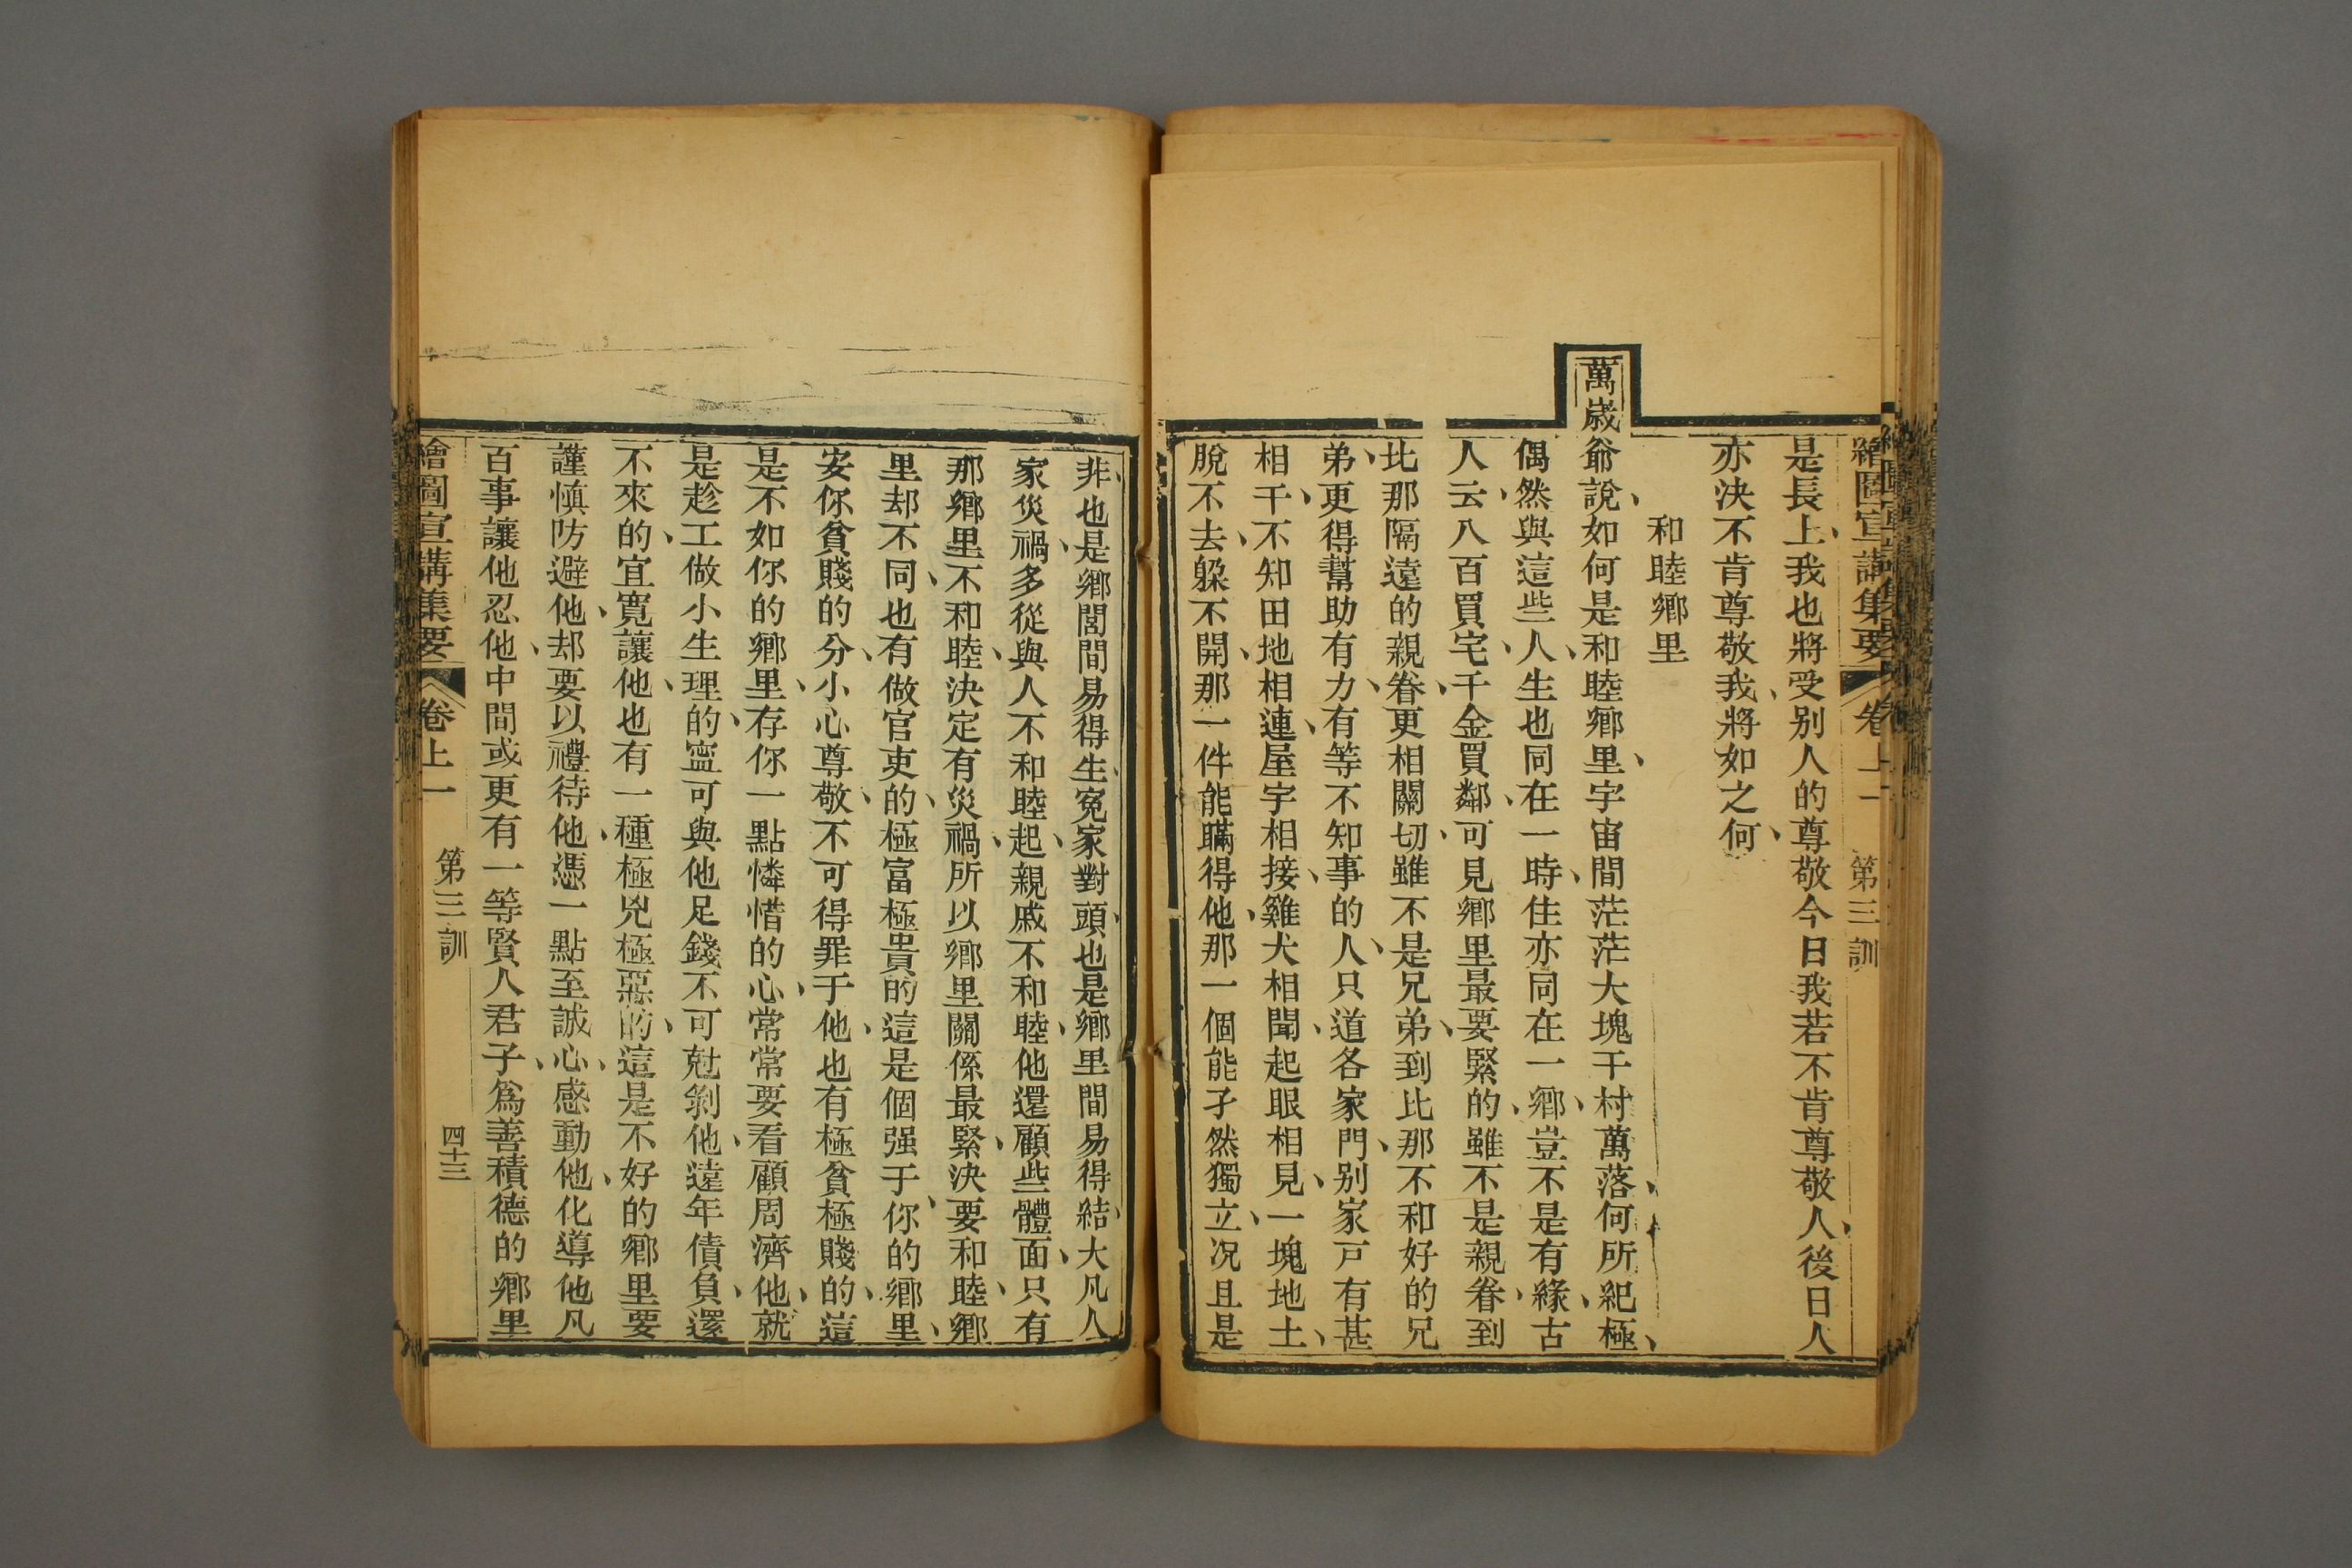 繪圖宣講集要 卷上一 第三訓
是長上、我也將受别人的尊敬今日我若不肯尊敬人、後日人
亦決不肯尊敬我、將如之何、
和睦鄉里
萬歲爺說、如何是和睦鄉里、宇宙間茫茫大塊千村萬落、何所紀極、
偶然與這些人、生也同在一時、住亦同在一鄉、豈不是有緣、古
人云、八百買宅、千金買鄰、可見鄉里最要緊的、雖不是親眷、到
比那隔遠的親眷、更相關切、雖不是兄弟、到比那不和好的兄
弟、更得幫助有力、有等不知事的人、只道各家門、别家戸有甚
相干、不知田地相連、屋宇相接、雞犬相聞、起眼相見、一塊地土、
脫不去、躱不開、那一件能瞞得他、那一個能孑然獨立、况且是
非、也是鄉閭間易得生、寃家對頭、也是鄉里間易得結、大凡人
家災禍、多從與人不和睦起、親戚不和睦、他還顧些體面、只有
那鄉里不和睦、決定有災禍、所以鄉里關係最緊、決要和睦、鄉
里却不同、也有做官吏的、極富極貴的這是個强于你、的鄉里、
安你貧賤的分、小心尊敬、不可得罪于他、也有極貧極賤的、這
是不如你的鄉里、存你一點憐惜的心、常常要看顧周濟他、就
是趁工做小生理的、寧可與他足錢不可尅剝他、遠年債負、還
不來的、宜寬讓他、也有一種極兇極惡的、這是不好的鄉里要
謹慎防避他、却要以禮待他、憑一點至誠心、感動他、化導他凡
百事讓他忍他、中間或更有一等賢人君子、爲善積德的鄉里
繪圖宣講集要 卷上一 第三訓 四十三